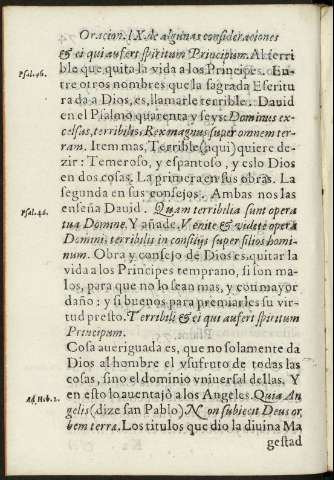 Oracion. IX. de algunas consideraciones
& ei qui aufert spiritum Principum. Al terri
ble que quita la vida a los Principes. En-
tre otros nombres que la sagrada Escritu
ra da a Dios, es, llamarle terrible. Dauid
en el Psalmo quarenta y seys: Dominus ex-
celsus, terribilis: Rex magnus super omnem ter-
ram. Item mas, Terrible (aqui) quiere de-
zir: Temeroso, y espantoso, y eslo Dios
en dos cosas. La primera en sus obras. La
segunda en sus consejos. Ambas nos las
enseña Dauid. Quam terribilia sunt opera
tua Domine. Y añade. Venite & videte opera
Domini: terribilis in consilijs super filios homi-
num. Obra y consejo de Dios es, quitar la
vida a los Principes temprano, si son ma-
los, para que no lo sean mas, y con mayor
daño: y si buenos para premiarles su vir-
tud presto. Terribili & ei qui aufert spiritum
Principum.
Cosa aueriguada es, que no solamente da
Dios al hombre el vsufruto de todas las
cosas, sino el dominio vniuersal dellas. Y
en esto lo auentajò a los Angeles. Quia An
gelis (dize san Pablo) Non subiecit Deus or
bem terra. Los titulos que dio la diuina Ma
gestad
Psal. 46.
Psal. 46.
Ad Heb. 2.